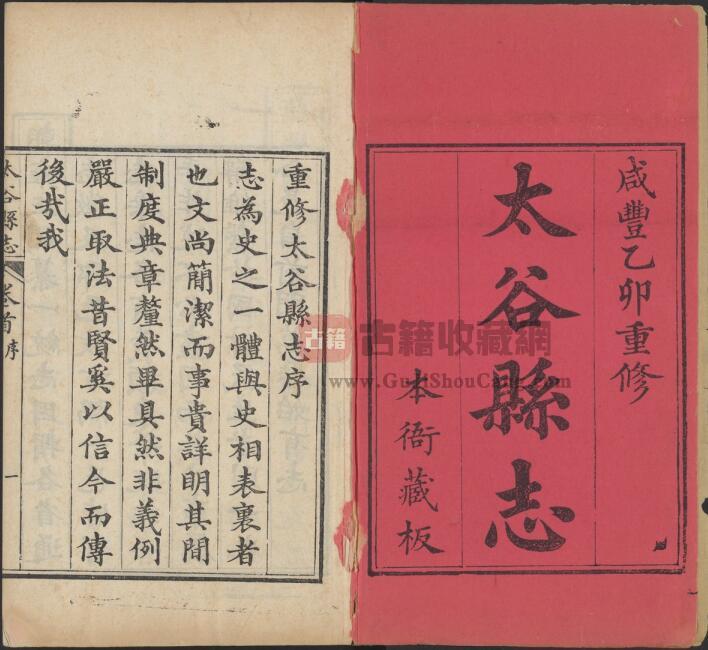 咸豐乙卯重修
太谷縣志
本衙藏板
重修太谷縣志序
志為史之一體與史相表裏者
也文尚簡潔而事貴詳明其間
制度典章釐然畢具然非義例
嚴正取法昔賢奚以信今而傳
後哉我
太谷縣志
卷首序
一
古籍
古籍收藏網
www.GujiShouCang.com